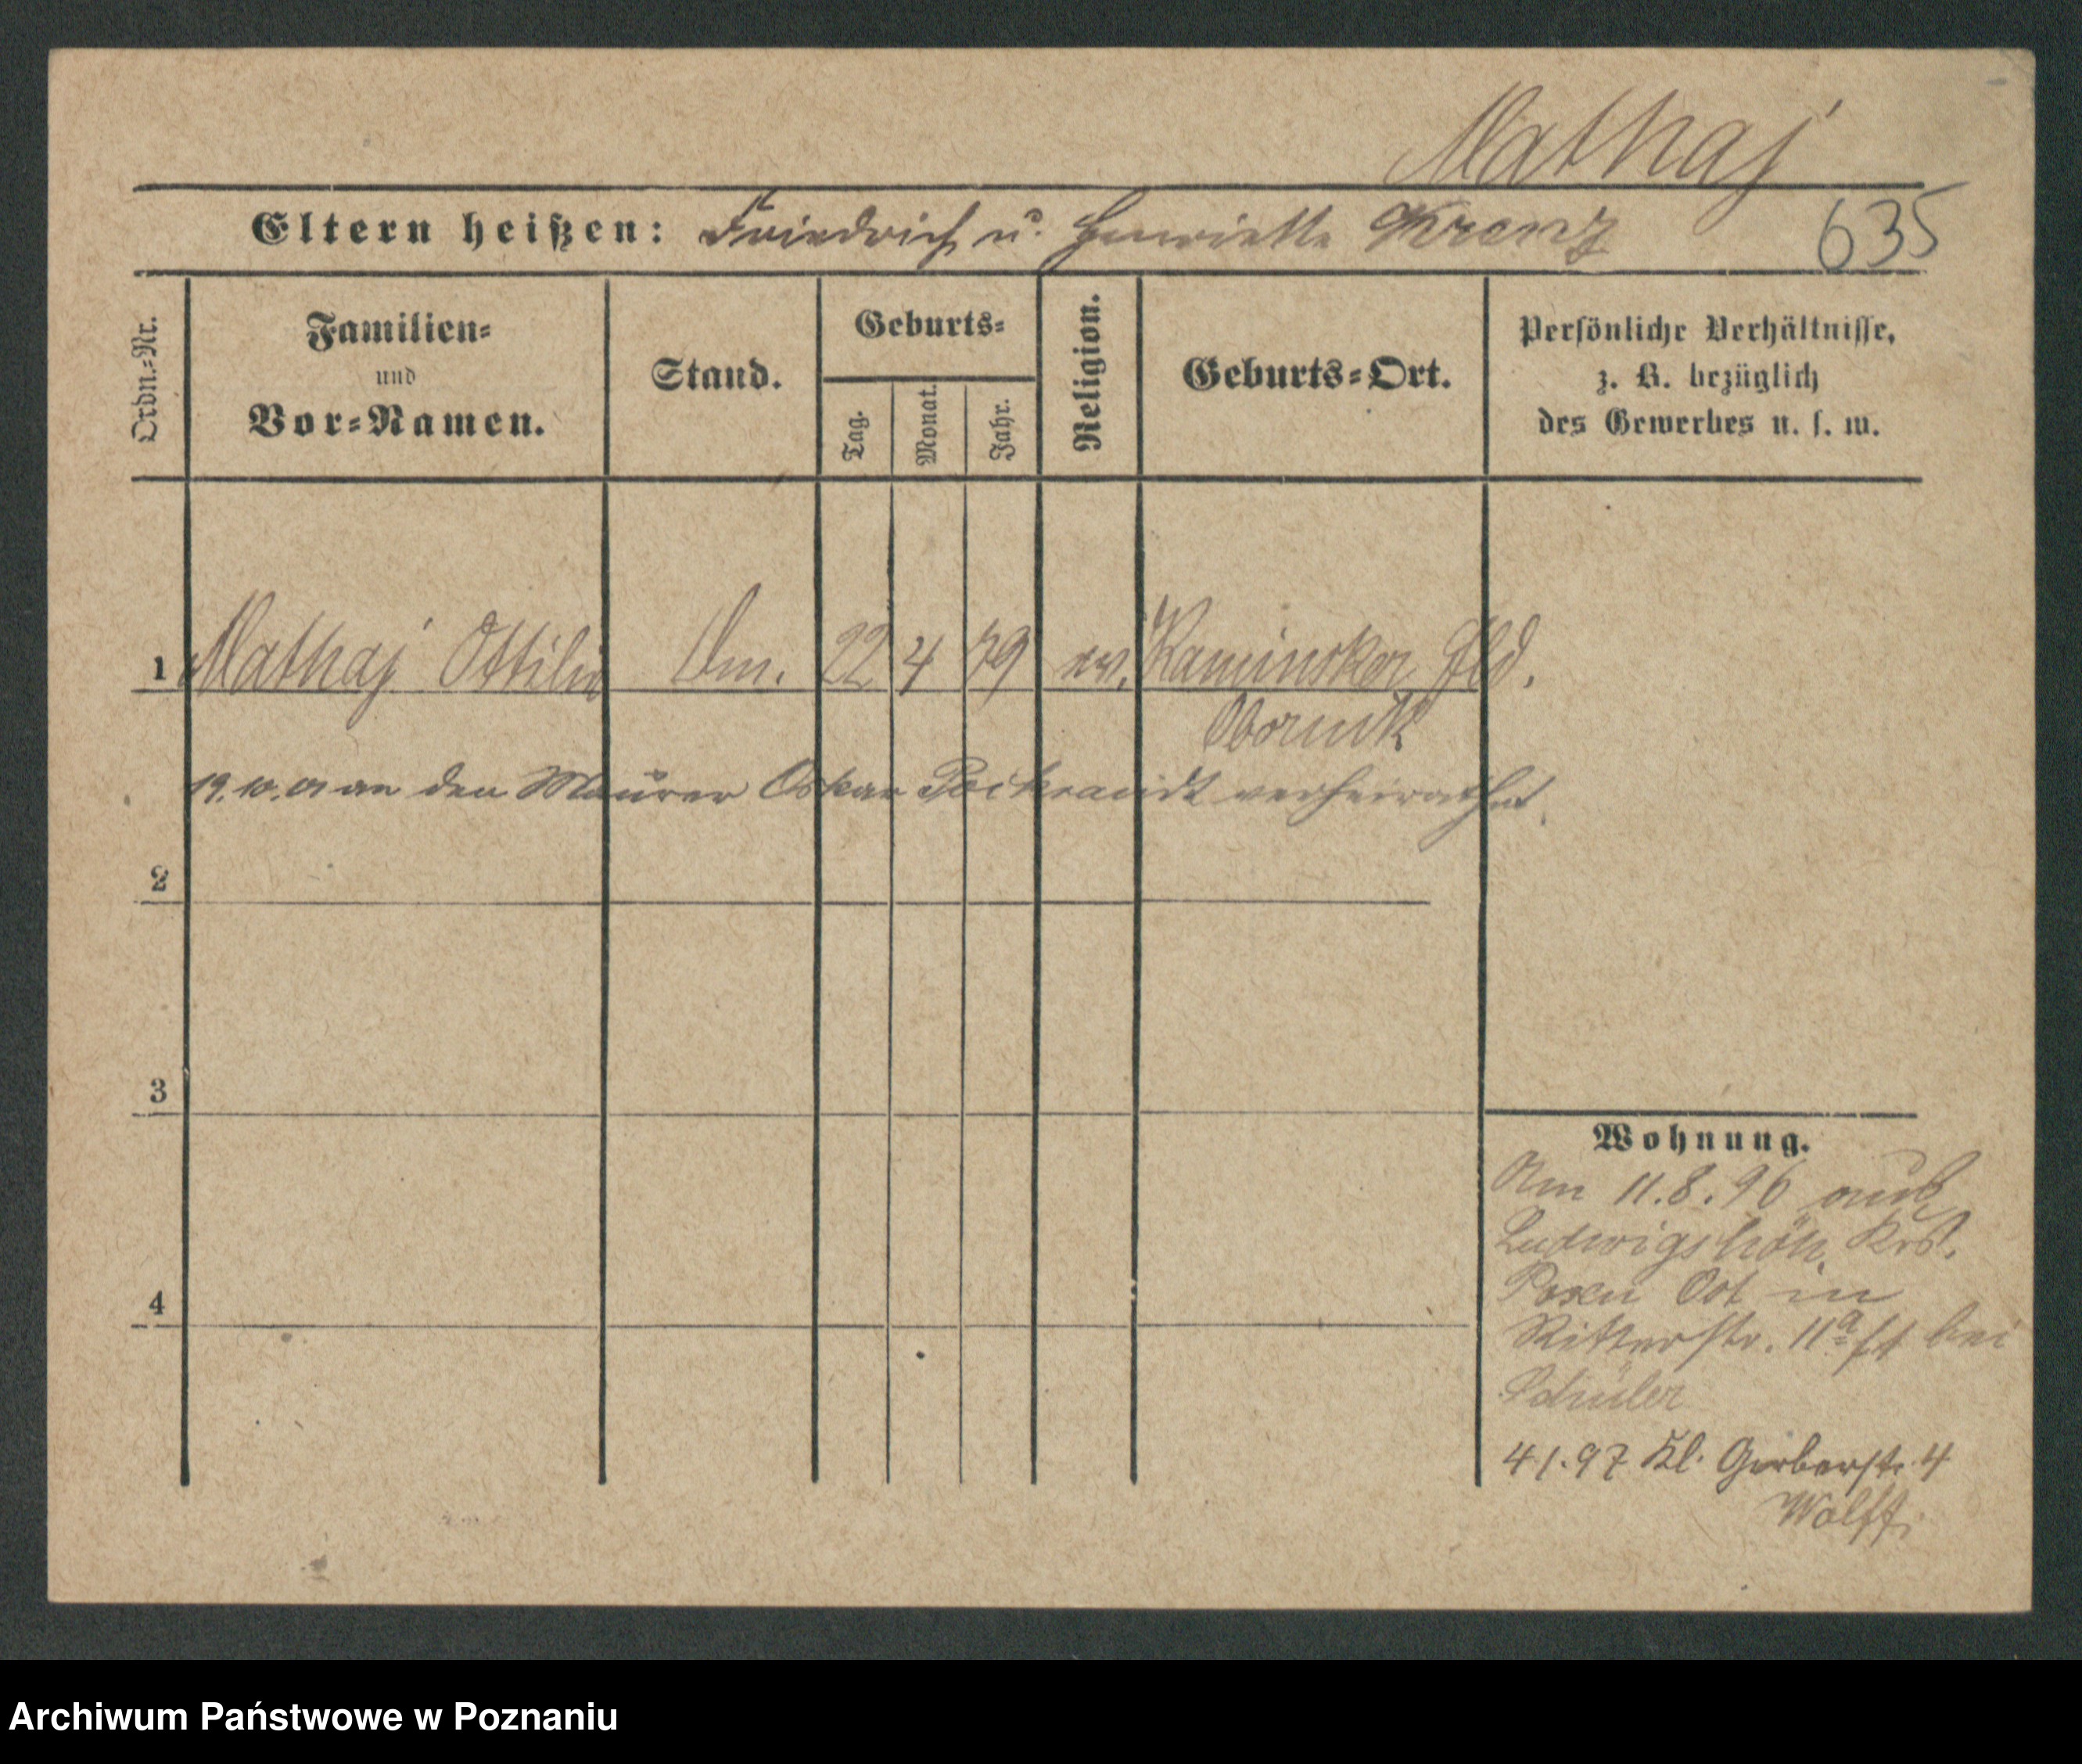 Mathaj
Eltern heißen: Friedrich u. Henriette Krenz 635
Ordn.-Nr.
Familien-
und
Vor-Namen.
Stand.
Geburts-
Tag.
Monat.
Jahr.
Religion.
Geburts-Ort.
Persönliche Verhältnisse,
z. B. bezüglich
des Gewerbes u. s. w.
1 Mathaj Ottilie 22 4 79 ev. Kaminsker Hld.
Obornik
19.10.01 an den Maurer Oskar Pockrandt verheirathet.
2
3
4
Wohnung.
Am 11.8.96 aus
Ludwigshöh, Krs.
Posen Ost in
Ritterstr. 11a bei
Schüler
4.1.97 Kl. Gerberstr. 4
Wolff.
Archiwum Państwowe w Poznaniu